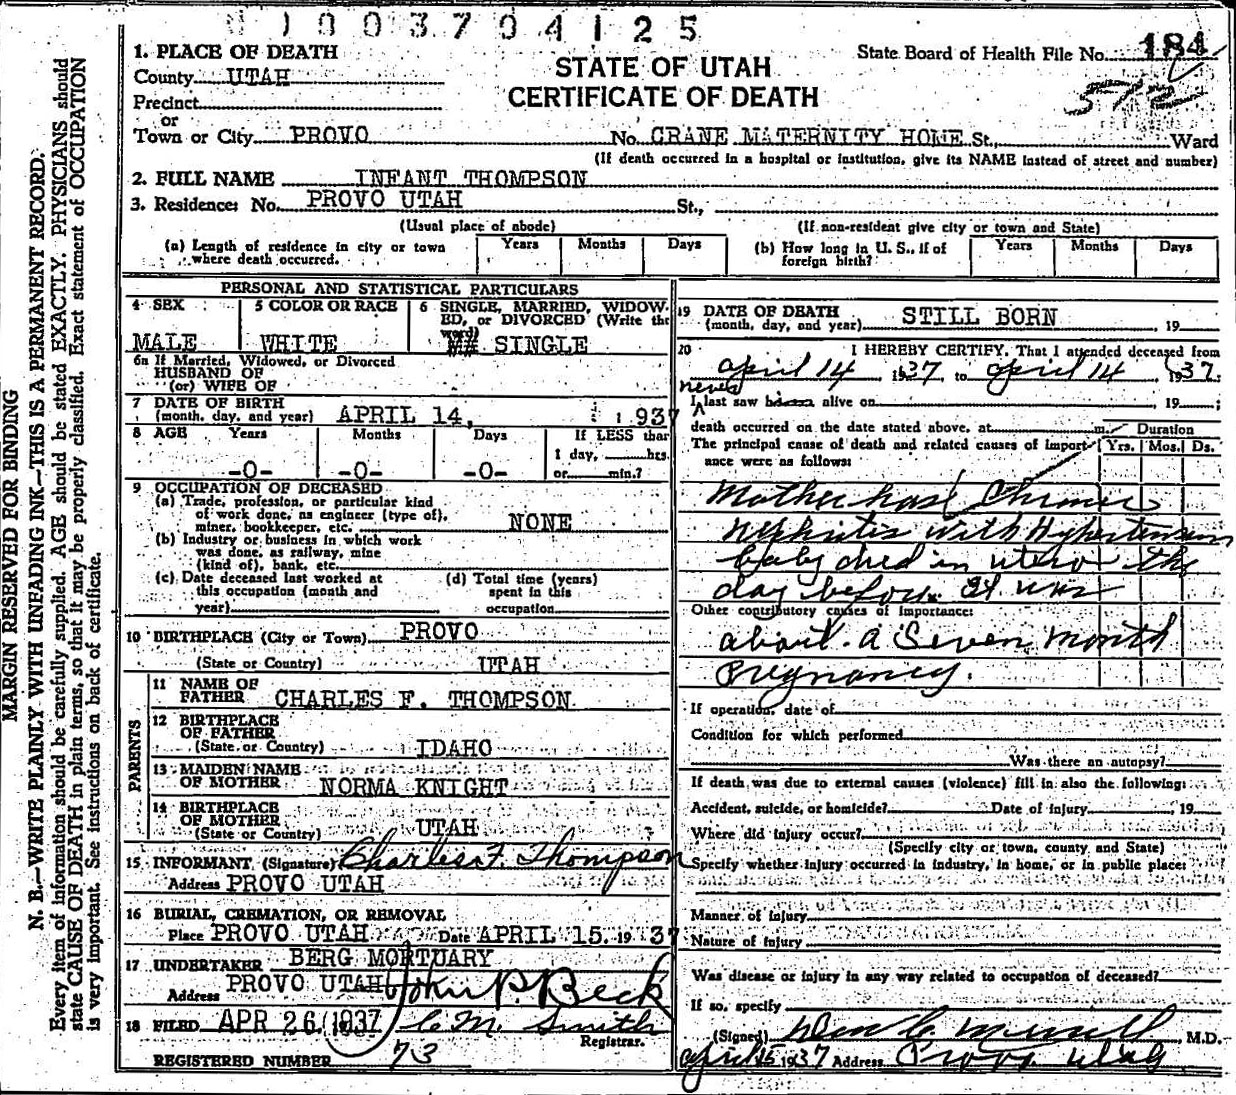 1003704125
1. PLACE OF DEATH
County UTAH
Precinct
or
Town or City PROVO
STATE OF UTAH
CERTIFICATE OF DEATH
State Board of Health File No. 184
572
No. CRANE MATERNITY HOME St., Ward
(If death occurred in a hospital or institution, give its NAME instead of street and number)
2. FULL NAME INFANT THOMPSON
3. Residence: No. PROVO UTAH St.,
(Usual place of abode) (If non-resident give city or town and State)
(a) Length of residence in city or town where death occurred. Years Months Days
(b) How long in U. S., if of foreign birth? Years Months Days
PERSONAL AND STATISTICAL PARTICULARS
4 SEX MALE
5 COLOR OR RACE WHITE
6 SINGLE, MARRIED, WIDOWED, or DIVORCED (Write the word) SINGLE
6a If Married, Widowed, or Divorced
HUSBAND OF
(or) WIFE OF
7 DATE OF BIRTH
(month, day, and year) APRIL 14, 1937
8 AGE Years Months Days If LESS than
1 day, hrs.
-0- -0- -0- or min.?
9 OCCUPATION OF DECEASED
(a) Trade, profession, or particular kind
of work done, as engineer (type of),
miner, bookkeeper, etc. NONE
(b) Industry or business in which work
was done, as railway, mine
(kind of), bank, etc.
(c) Date deceased last worked at
this occupation (month and
year)
(d) Total time (years)
spent in this
occupation
10 BIRTHPLACE (City or Town) PROVO
(State or Country) UTAH
PARENTS
11 NAME OF
FATHER CHARLES F. THOMPSON
12 BIRTHPLACE
OF FATHER
(State or Country) IDAHO
13 MAIDEN NAME
OF MOTHER NORMA KNIGHT
14 BIRTHPLACE
OF MOTHER
(State or Country) UTAH
15 INFORMANT (Signature) Charles F. Thompson
Address PROVO UTAH
16 BURIAL, CREMATION, OR REMOVAL
Place PROVO UTAH Date APRIL 15. 1937
17 UNDERTAKER BERG MORTUARY
Address PROVO UTAH John P. Beck
18 FILED APR 26 1937 C. M. Smith
Registrar.
REGISTERED NUMBER 73
19 DATE OF DEATH
(month, day, and year) STILL BORN, 19
20 I HEREBY CERTIFY, That I attended deceased from
april 14 1937 to april 14, 1937
never
I last saw alive on , 19 ;
death occurred on the date stated above, at m. Duration
The principal cause of death and related causes of importance were as follows: Yrs. Mos. Ds.
Mother has Chronic
nephritis with Hypertension
baby died in utero the
day before. It was
Other contributory causes of importance:
about a Seven month
Pregnancy.
If operation, date of
Condition for which performed
Was there an autopsy?
If death was due to external causes (violence) fill in also the following:
Accident, suicide, or homicide? Date of injury , 19
Where did injury occur?
(Specify city or town, county and State)
Specify whether injury occurred in industry, in home, or in public place:
Manner of injury
Nature of injury
Was disease or injury in any way related to occupation of deceased?
If so, specify
(Signed) , M.D.
april 15 1937 Address Provo Utah
MARGIN RESERVED FOR BINDING
N. B.—WRITE PLAINLY WITH UNFADING INK—THIS IS A PERMANENT RECORD.
Every item of information should be carefully supplied. AGE should be stated EXACTLY. PHYSICIANS should
state CAUSE OF DEATH in plain terms, so that it may be properly classified. Exact statement of OCCUPATION
is very important. See instructions on back of certificate.